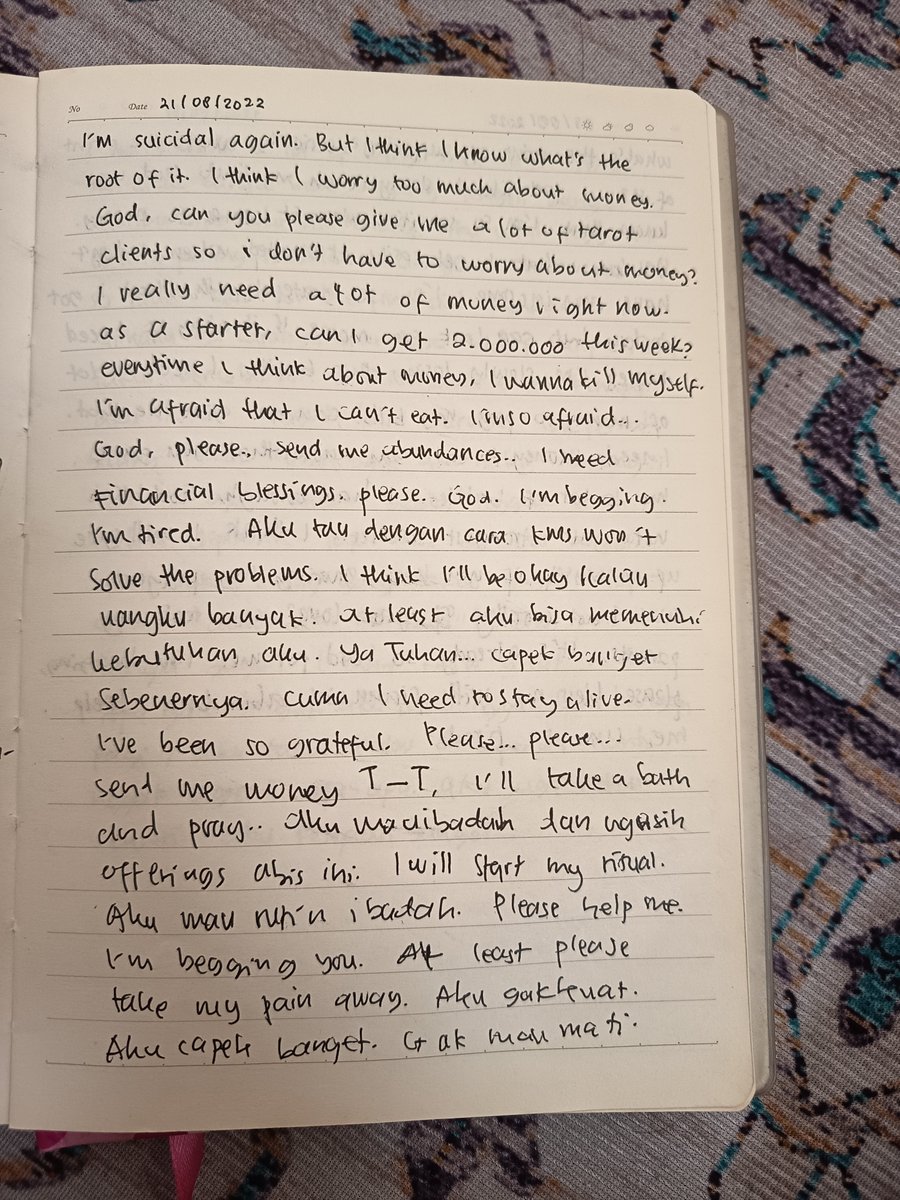 No Date 21/08/2022
I'm suicidal again. But I think I know what's the
root of it. I think I worry too much about money.
God, can you please give me a lot of tarot
clients so i don't have to worry about money?
I really need a lot of money right now.
as a starter, can I get 2.000.000 this week?
everytime I think about money, I wanna kill myself.
I'm afraid that I can't eat. I'm so afraid...
God, please.. send me abundances.. I need
Financial blessings. please. God. I'm begging.
I'm tired. Aku tau dengan cara kms won't
solve the problems. I think I'll be okay kalau
uangku banyak. at least aku bisa memenuhi
kebutuhan aku. Ya Tuhan... capek banget
sebenernya. cuma I need to stay alive.
I've been so grateful. Please... please...
send me money T_T, I'll take a bath
and pray.. aku mau ibadah dan ngasih
offerings abis ini. I will start my ritual.
Aku mau rutin ibadah. Please help me.
I'm begging you. At least please
take my pain away. Aku gak kuat.
Aku capek banget. Gak mau mati.